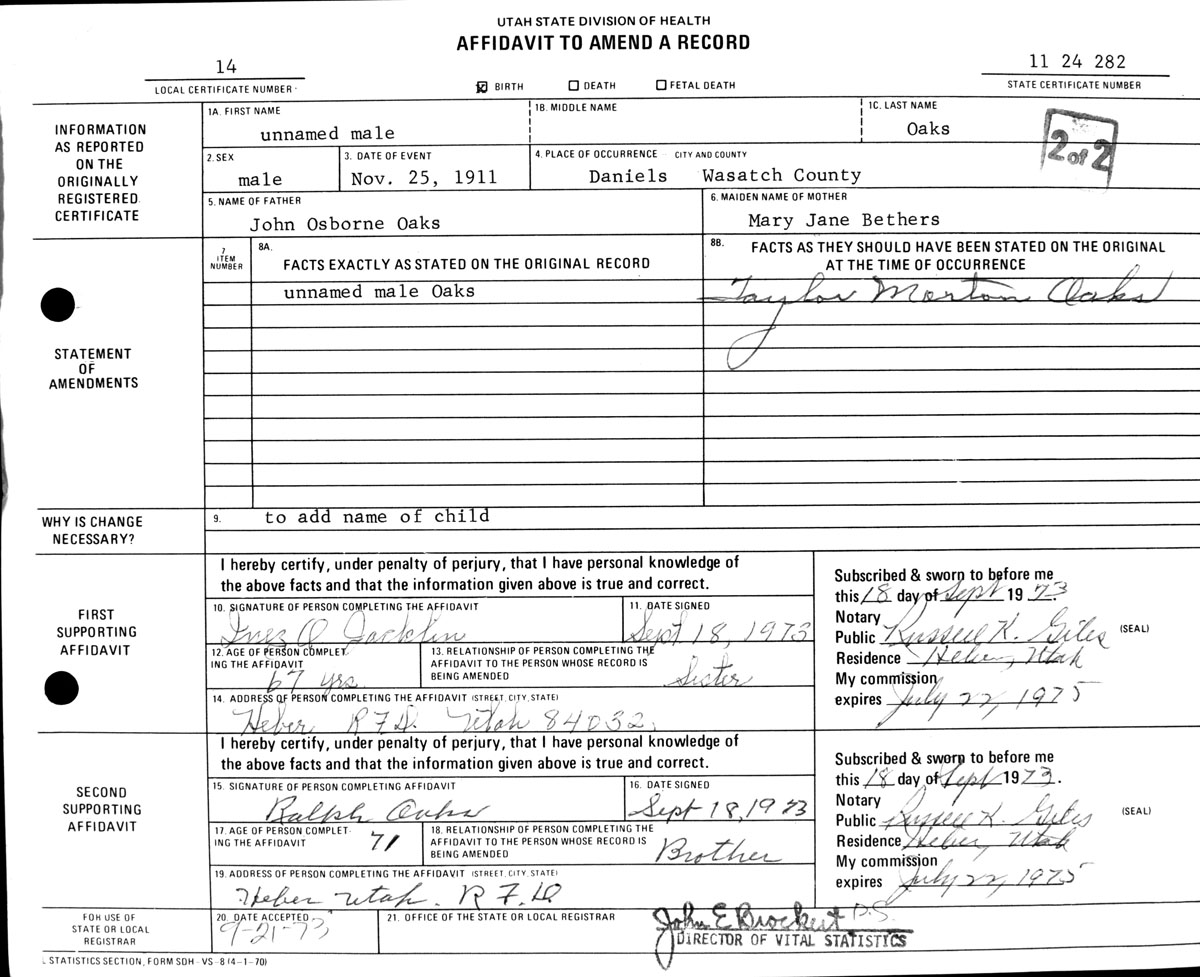 UTAH STATE DIVISION OF HEALTH
AFFIDAVIT TO AMEND A RECORD
14
LOCAL CERTIFICATE NUMBER
☒ BIRTH ☐ DEATH ☐ FETAL DEATH
11 24 282
STATE CERTIFICATE NUMBER
INFORMATION
AS REPORTED
ON THE
ORIGINALLY
REGISTERED
CERTIFICATE
1A. FIRST NAME
unnamed male
1B. MIDDLE NAME
1C. LAST NAME
Oaks
2 of 2
2. SEX
male
3. DATE OF EVENT
Nov. 25, 1911
4. PLACE OF OCCURRENCE - CITY AND COUNTY
Daniels Wasatch County
5. NAME OF FATHER
John Osborne Oaks
6. MAIDEN NAME OF MOTHER
Mary Jane Bethers
STATEMENT
OF
AMENDMENTS
7
ITEM
NUMBER
8A.
FACTS EXACTLY AS STATED ON THE ORIGINAL RECORD
8B. FACTS AS THEY SHOULD HAVE BEEN STATED ON THE ORIGINAL
AT THE TIME OF OCCURRENCE
unnamed male Oaks
Taylor Morton Oaks
WHY IS CHANGE
NECESSARY?
9. to add name of child
FIRST
SUPPORTING
AFFIDAVIT
I hereby certify, under penalty of perjury, that I have personal knowledge of
the above facts and that the information given above is true and correct.
10. SIGNATURE OF PERSON COMPLETING THE AFFIDAVIT
Inez O Jacklin
11. DATE SIGNED
Sept 18, 1973
12. AGE OF PERSON COMPLET-
ING THE AFFIDAVIT
67 yrs.
13. RELATIONSHIP OF PERSON COMPLETING THE
AFFIDAVIT TO THE PERSON WHOSE RECORD IS
BEING AMENDED
Sister
14. ADDRESS OF PERSON COMPLETING THE AFFIDAVIT (STREET, CITY, STATE)
Heber R F D. Utah 84032.
Subscribed & sworn to before me
this 18 day of Sept 1973
Notary
Public Russell K. Giles (SEAL)
Residence Heber, Utah
My commission
expires July 22, 1975
SECOND
SUPPORTING
AFFIDAVIT
I hereby certify, under penalty of perjury, that I have personal knowledge of
the above facts and that the information given above is true and correct.
15. SIGNATURE OF PERSON COMPLETING AFFIDAVIT
Ralph Oaks
16. DATE SIGNED
Sept 18, 1973
17. AGE OF PERSON COMPLET-
ING THE AFFIDAVIT 71
18. RELATIONSHIP OF PERSON COMPLETING THE
AFFIDAVIT TO THE PERSON WHOSE RECORD IS
BEING AMENDED
Brother
19. ADDRESS OF PERSON COMPLETING THE AFFIDAVIT (STREET, CITY, STATE)
Heber Utah. R F D
Subscribed & sworn to before me
this 18 day of Sept 1973.
Notary
Public Russell K. Giles (SEAL)
Residence Heber, Utah
My commission
expires July 22, 1975
FOR USE OF
STATE OR LOCAL
REGISTRAR
20. DATE ACCEPTED
9-21-73
21. OFFICE OF THE STATE OR LOCAL REGISTRAR
John E Brockert D.S.
DIRECTOR OF VITAL STATISTICS
L STATISTICS SECTION, FORM SDH - VS - 8 (4-1-70)